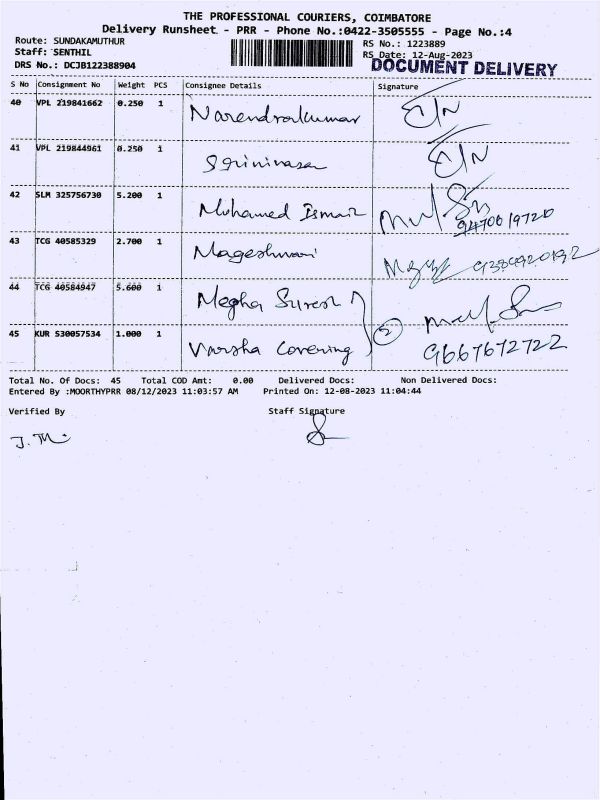 THE PROFESSIONAL COURIERS, COIMBATORE
Delivery Runsheet - PRR - Phone No.:0422-3505555 - Page No.:4
Route: SUNDAKAMUTHUR
RS No.: 1223889
Staff: SENTHIL
RS Date: 12-Aug-2023
DRS No.: DCJB122388904
DOCUMENT DELIVERY
S No Consignment No Weight PCS Consignee Details Signature
40 VPL 219841662 0.250 1 Narendrakumar
41 VPL 219844961 0.250 1 Srinivasan
42 SLM 325756730 5.200 1 Mohamed Ismail
43 TCG 40585329 2.700 1 Mageshwari
44 TCG 40584947 5.600 1 Megha Suresh
45 KUR S30057534 1.000 1 Varsha Covering
2
9667672722
Total No. Of Docs: 45 Total COD Amt: 0.00 Delivered Docs: Non Delivered Docs:
Entered By :MOORTHYPRR 08/12/2023 11:03:57 AM Printed On: 12-08-2023 11:04:44
Verified By Staff Signature